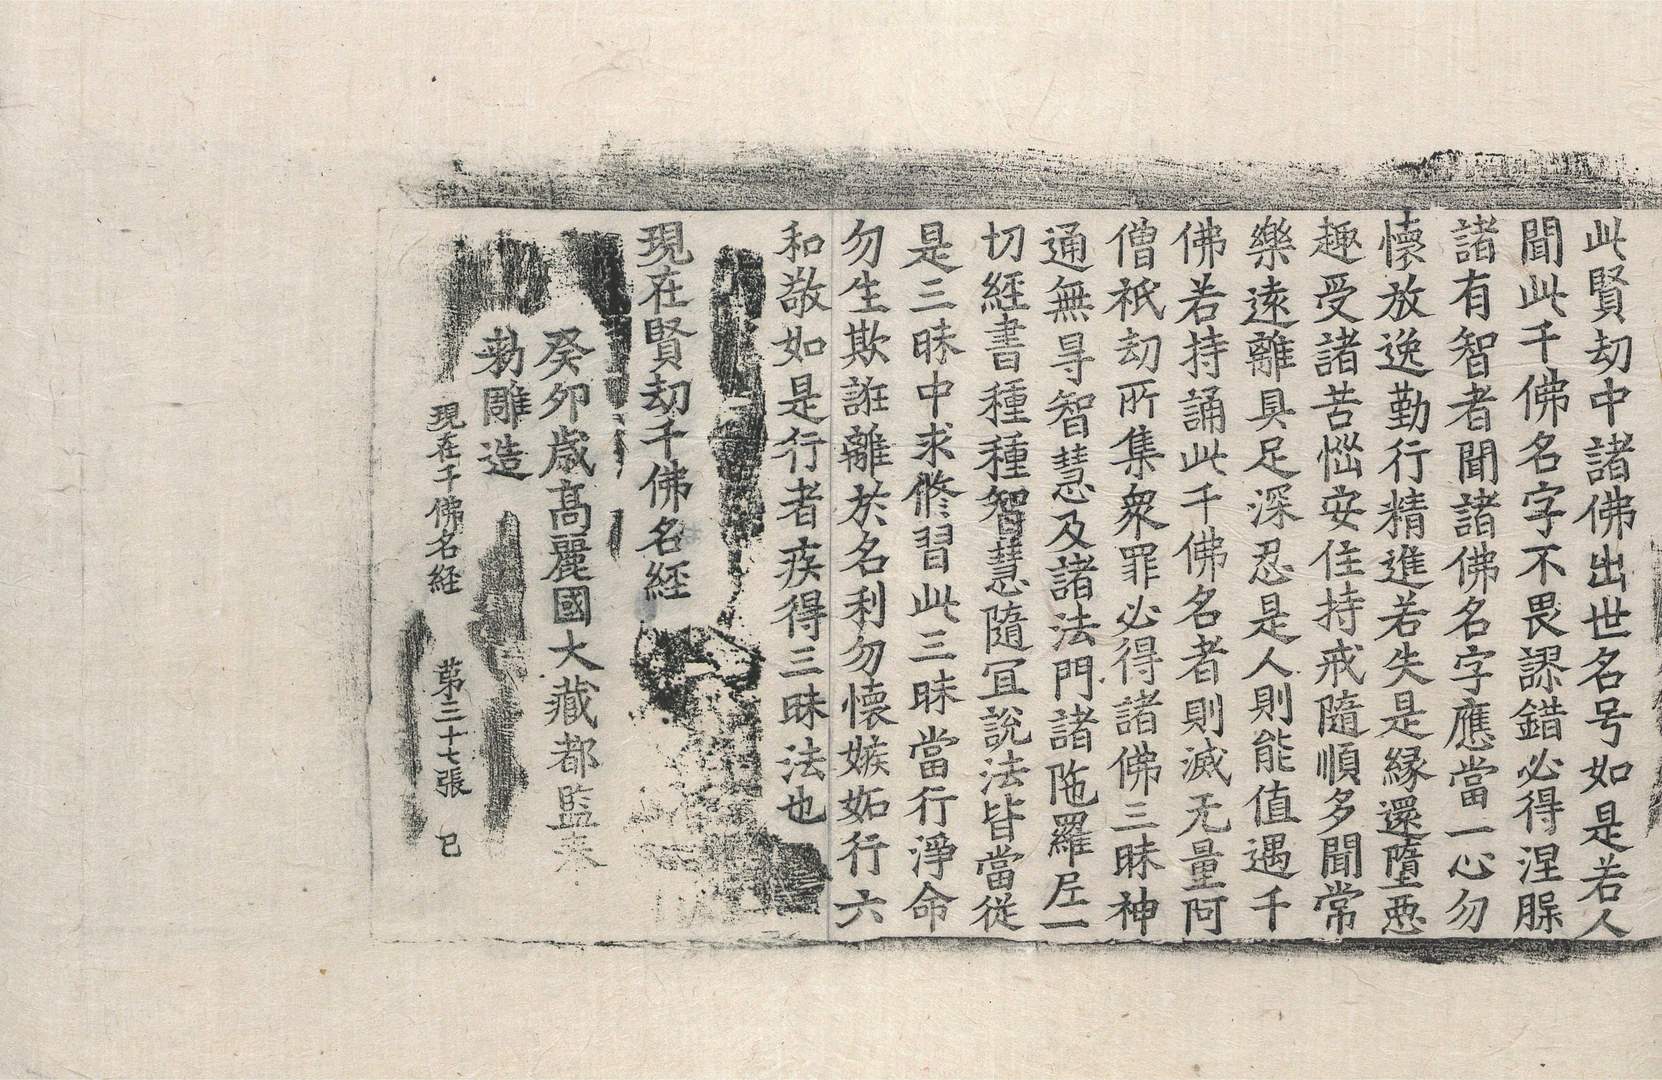 此賢劫中諸佛出世名号如是若人
聞此千佛名字不畏謬錯必得涅槃
諸有智者聞諸佛名字應當一心勿
懷放逸勤行精進若失是緣還墮惡
趣受諸苦惱安住持戒隨順多聞常
樂遠離具足深忍是人則能值遇千
佛若持誦此千佛名者則滅无量阿
僧祇劫所集衆罪必得諸佛三昧神
通無㝵智慧及諸法門諸陁羅尼一
切經書種種智慧隨冝說法皆當從
是三昧中求修習此三昧當行淨命
勿生欺誑離於名利勿懷嫉妬行六
和敬如是行者疾得三昧法也
現在賢劫千佛名經
癸卯歲高麗國大藏都監奉
勅雕造
現在千佛名経 第三十七張 巳